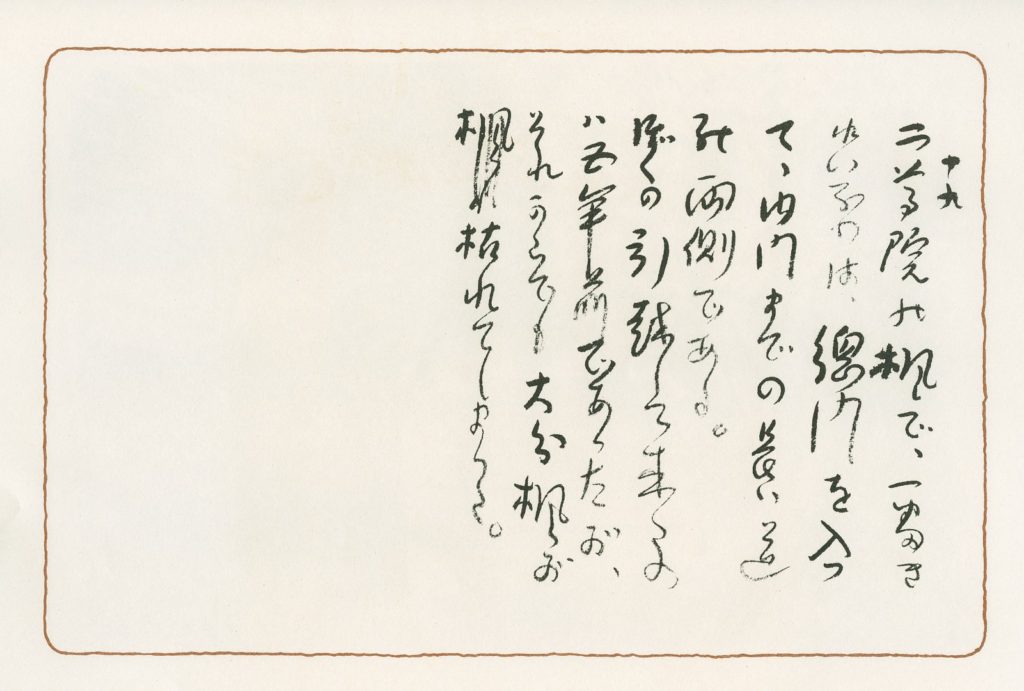 十九
二尊院の楓で、一番き
れいなのは、總門を入つ
て、内門までの長い道
の両側である。
僕の引越して来たの
は五年前であつたが、
それからでも大分楓が
楓が枯れてしまつた。